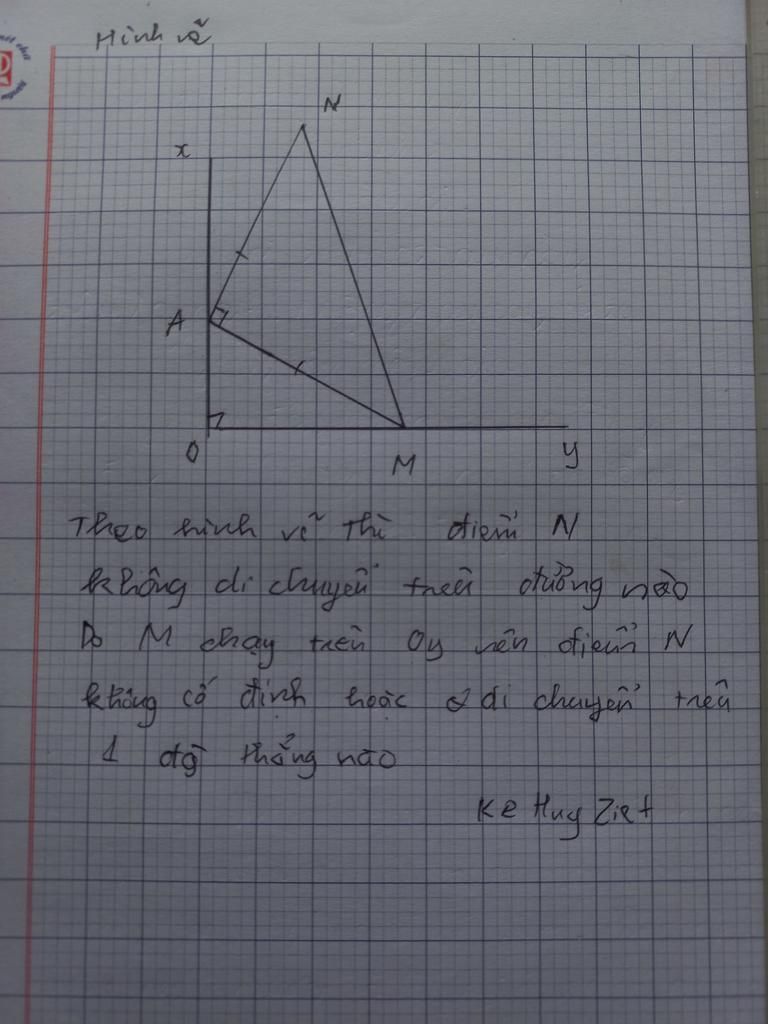 Hình vẽ
N
x
A
O
M
y
Theo hình vẽ thì điểm N
không di chuyển trên đường nào
Do M chạy trên Oy nên điểm N
không cố định hoặc di chuyển trên
1 đg thẳng nào
Ke Huy Ziet